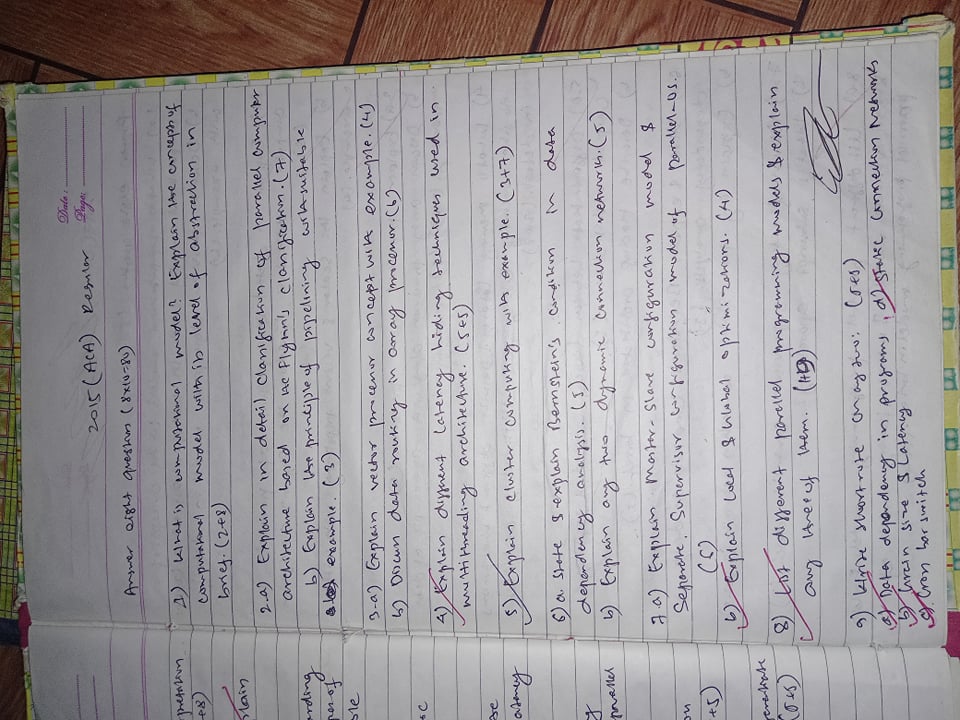 Date :
Page:
2015 (ACA) Regular
Answer eight questions (8x10=80)
1) What is computational model? Explain the concept of
computational model with its level of abstraction in
brief. (2+8)
2.a) Explain in detail classification of parallel computer
architecture based on the Flynn's classification. (7)
b) Explain the principle of pipelining with suitable
example. (3)
3.a) Explain vector processor concept with example. (4)
b) Discuss data routing in array processor. (6)
4) Explain different latency hiding techniques used in
multithreading architecture. (5+5)
5) Explain cluster computing with example. (3+7)
6) a. State & explain Bernstein's condition in data
dependency analysis. (5)
b) Explain any two dynamic connection networks. (5)
7.a) Explain Master-Slave configuration model &
Separate Supervisor configuration model of parallel-OS.
b) Explain Local & Global optimizations. (4)
8) List different parallel programming models & explain
any three of them.
9) Write short note on any two: (5+5)
a) Data dependency in programs, d) Static Connection Networks
b) Grain size & Latency
c) Cross bar switch
pretation
+8)
plain
arding
pes of
ple
atency
parallel
+5)
(5+5)